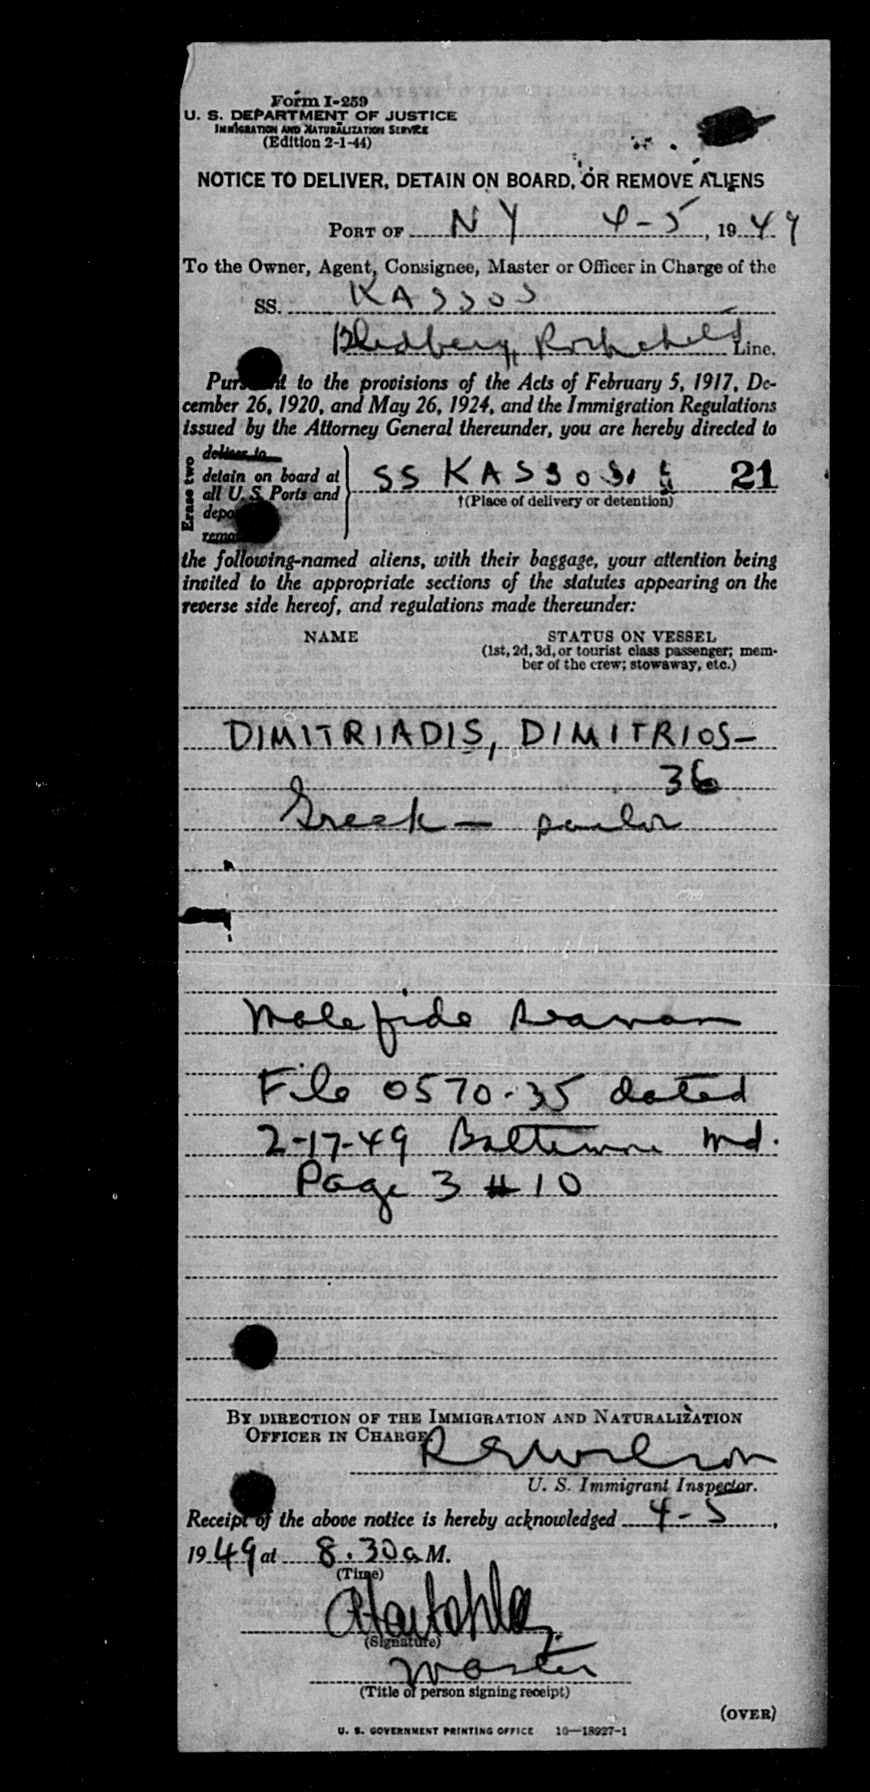 Form I-259
U. S. DEPARTMENT OF JUSTICE
IMMIGRATION AND NATURALIZATION SERVICE
(Edition 2-1-44)
NOTICE TO DELIVER, DETAIN ON BOARD, OR REMOVE ALIENS
PORT OF NY 4-5, 1949
To the Owner, Agent, Consignee, Master or Officer in Charge of the
SS. KASSOS
Line.
Pursuant to the provisions of the Acts of February 5, 1917, De-
cember 26, 1920, and May 26, 1924, and the Immigration Regulations
issued by the Attorney General thereunder, you are hereby directed to
Erase two
deliver to
detain on board at
all U. S. Ports and
SS KASSOS 21
†(Place of delivery or detention)
the following-named aliens, with their baggage, your attention being
invited to the appropriate sections of the statutes appearing on the
reverse side hereof, and regulations made thereunder:
NAME STATUS ON VESSEL
(1st, 2d, 3d, or tourist class passenger; mem-
ber of the crew; stowaway, etc.)
DIMITRIADIS, DIMITRIOS-
36
Greek - sailor
Malefide seaman
File 0570-35 dated
2-17-49 Baltimore Md.
Page 3 #10
BY DIRECTION OF THE IMMIGRATION AND NATURALIZATION
OFFICER IN CHARGE.
U. S. Immigrant Inspector.
Receipt of the above notice is hereby acknowledged 4-5,
1949 at 8.30 a M.
(Time)
(Signature)
Master
(Title of person signing receipt)
(OVER)
U. S. GOVERNMENT PRINTING OFFICE 16—18927-1